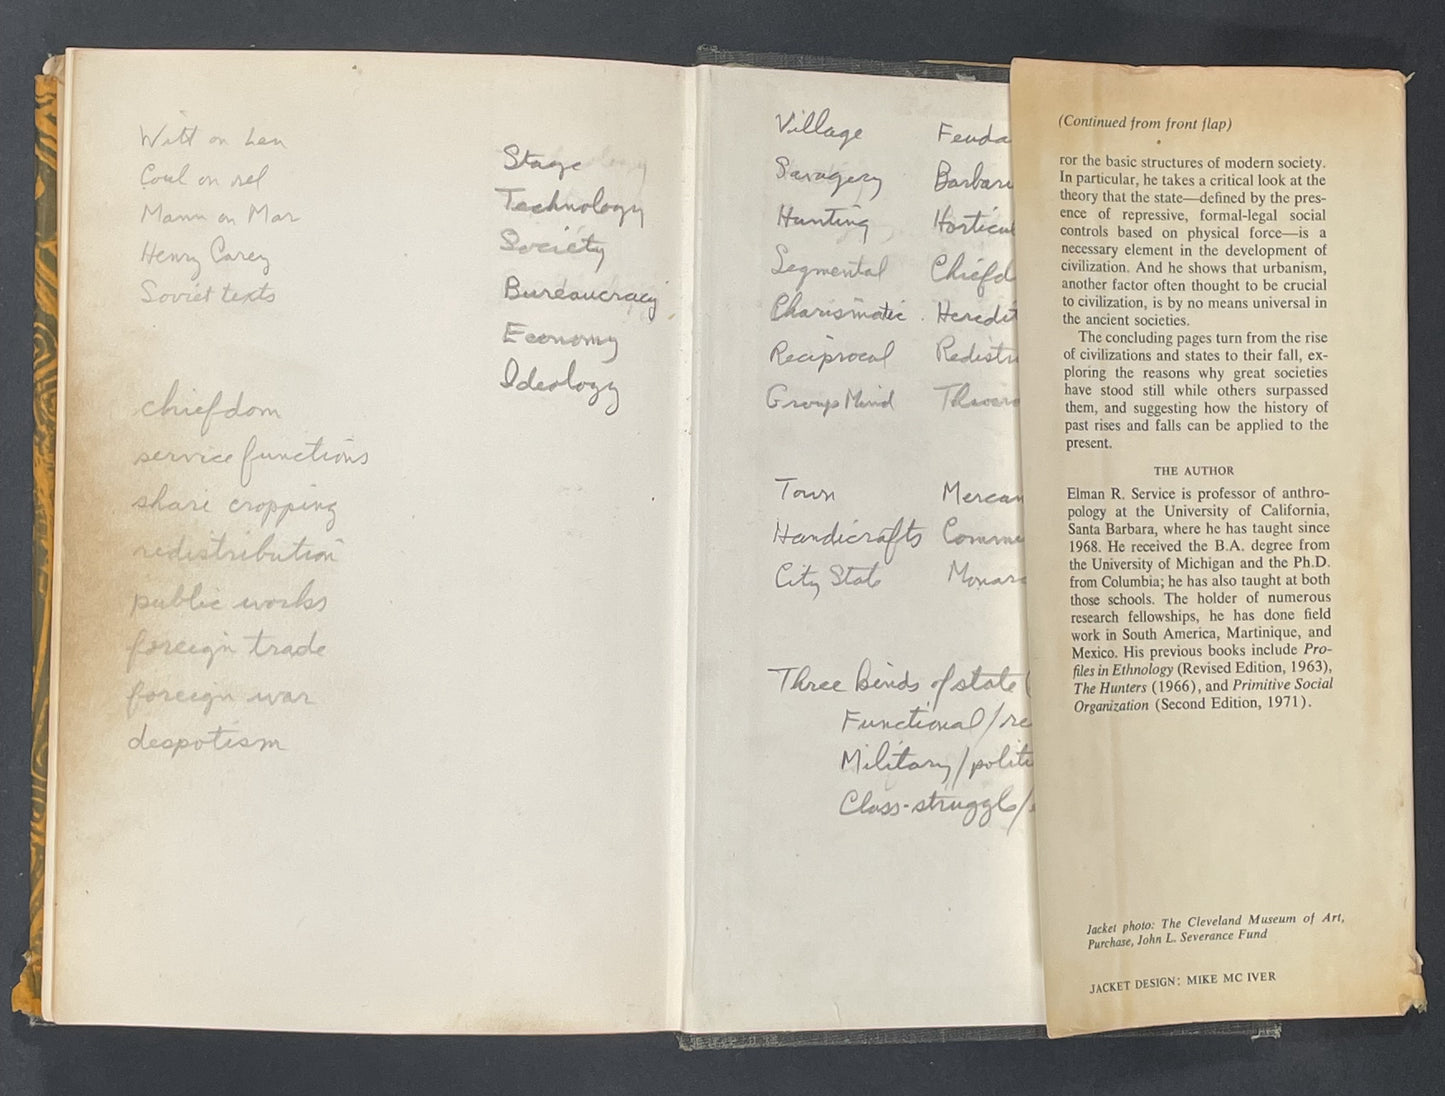 Witt on Len
Coul on rel
Mann on Mar
Henry Carey
Soviet texts
chiefdom
service functions
share cropping
redistribution
public works
foreign trade
foreign war
despotism
Stage
Technology
Society
Bureaucracy
Economy
Ideology
Village Feuda
Savagery Barbari
Hunting Horticul
Segmental Chiefd
Charismatic Heredit
Reciprocal Redistr
Group Mind
Town Mercan
Handicrafts Comme
City State Monarc
Three kinds of state (
Functional/re
Military/politi
Class-struggle/
(Continued from front flap)
ror the basic structures of modern society.
In particular, he takes a critical look at the
theory that the state—defined by the pres-
ence of repressive, formal-legal social
controls based on physical force—is a
necessary element in the development of
civilization. And he shows that urbanism,
another factor often thought to be crucial
to civilization, is by no means universal in
the ancient societies.
The concluding pages turn from the rise
of civilizations and states to their fall, ex-
ploring the reasons why great societies
have stood still while others surpassed
them, and suggesting how the history of
past rises and falls can be applied to the
present.
THE AUTHOR
Elman R. Service is professor of anthro-
pology at the University of California,
Santa Barbara, where he has taught since
1968. He received the B.A. degree from
the University of Michigan and the Ph.D.
from Columbia; he has also taught at both
those schools. The holder of numerous
research fellowships, he has done field
work in South America, Martinique, and
Mexico. His previous books include Pro-
files in Ethnology (Revised Edition, 1963),
The Hunters (1966), and Primitive Social
Organization (Second Edition, 1971).
Jacket photo: The Cleveland Museum of Art,
Purchase, John L. Severance Fund
JACKET DESIGN: MIKE MC IVER